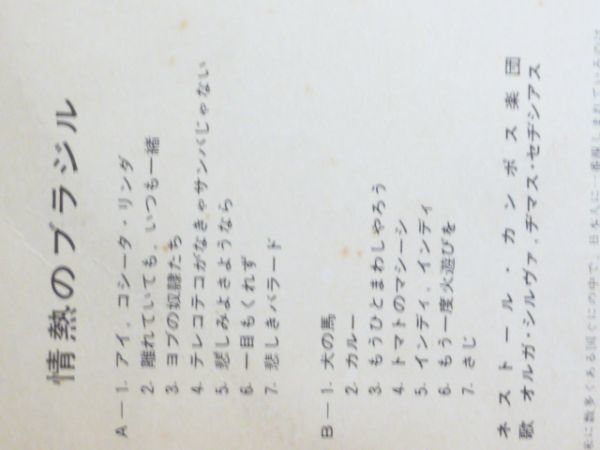 情熱のブラジル
A－1. アイ、コシータ・リンダ
2. 離れていても、いつも一緒
3. ヨブの奴隷たち
4. テレコテコがなきゃサンバじゃない
5. 悲しみよさようなら
6. 一目もくれず
7. 悲しきバラード
B－1. 火の馬
2. カルー
3. もうひとまわしやろう
4. トマトのマシーシ
5. インディ、インディ
6. もう一度火遊びを
7. さじ
ネストール・カンポス楽団
歌 オルガ・シルヴァ、ヂマス・セヂシアス
米に数多くある国ぐにの中で、日本人に一番親しまれているのは